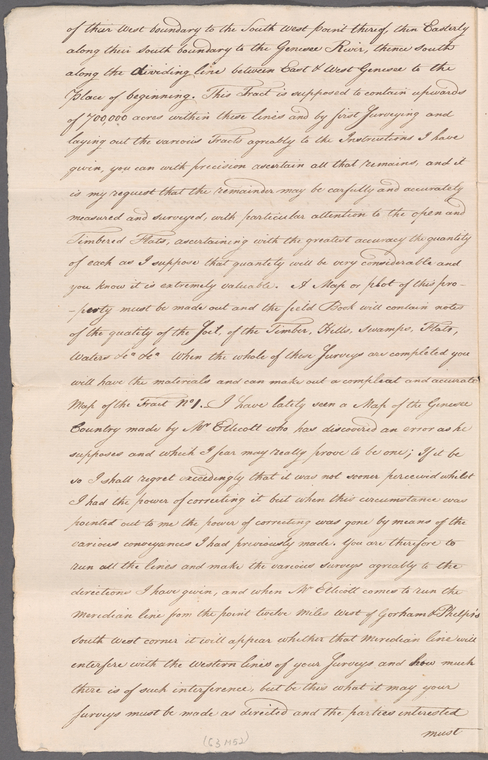 of their West boundary to the South west point thereof, then Easterly
along their South boundary to the Genesee River, thence South
along the dividing line between East & West Genesee to the
Place of beginning. This Tract is supposed to contain upwards
of 700,000 acres within these lines and by first Surveying and
laying out the various Tracts agriably to the Instructions I have
givin, you can with precision ascertain all that remains, and it
is my request that the remainder may be carfully and accurately
measured and surveyed, with particular attention to the open and
Timbered Flats, ascertaining with the greatest accuracy the quantity
of each as I suppose that quantity will be very considerable and
you know it is extremely valuable. A Map or plot of this pro-
-perty must be made out and the field Book will contain notes
of the quality of the Soil, of the Timber, Hills, Swamps, Flats,
Waters &c &c When the whole of these Surveys are completed you
will have the materials and can make out a compleat and accurate
Map of the Tract No 1. I have lately seen a Map of the Genesee
Country made by Mr Ellicott who has discovered an error as he
supposes and which I fear may really prove to be one; If it be
so I shall regret exceedingly that it was not sooner perceived whilst
I had the power of correcting it but when this circumstance was
pointed out to me the power of correcting was gone by means of the
various conveyances I had previously made. You are therefore to
run all the lines and make the various surveys agriably to the
directions I have givin, and when Mr Ellicott comes to run the
Meridian line from the point twelve Miles West of Gorham & Phelps's
South West corner it will appear whether that Meredian line will
enterfere with the Western lines of your Surveys and how much
there is of such interference, but be this what it may your
Surveys must be made as directed and the parties interested
must
(63 M52)